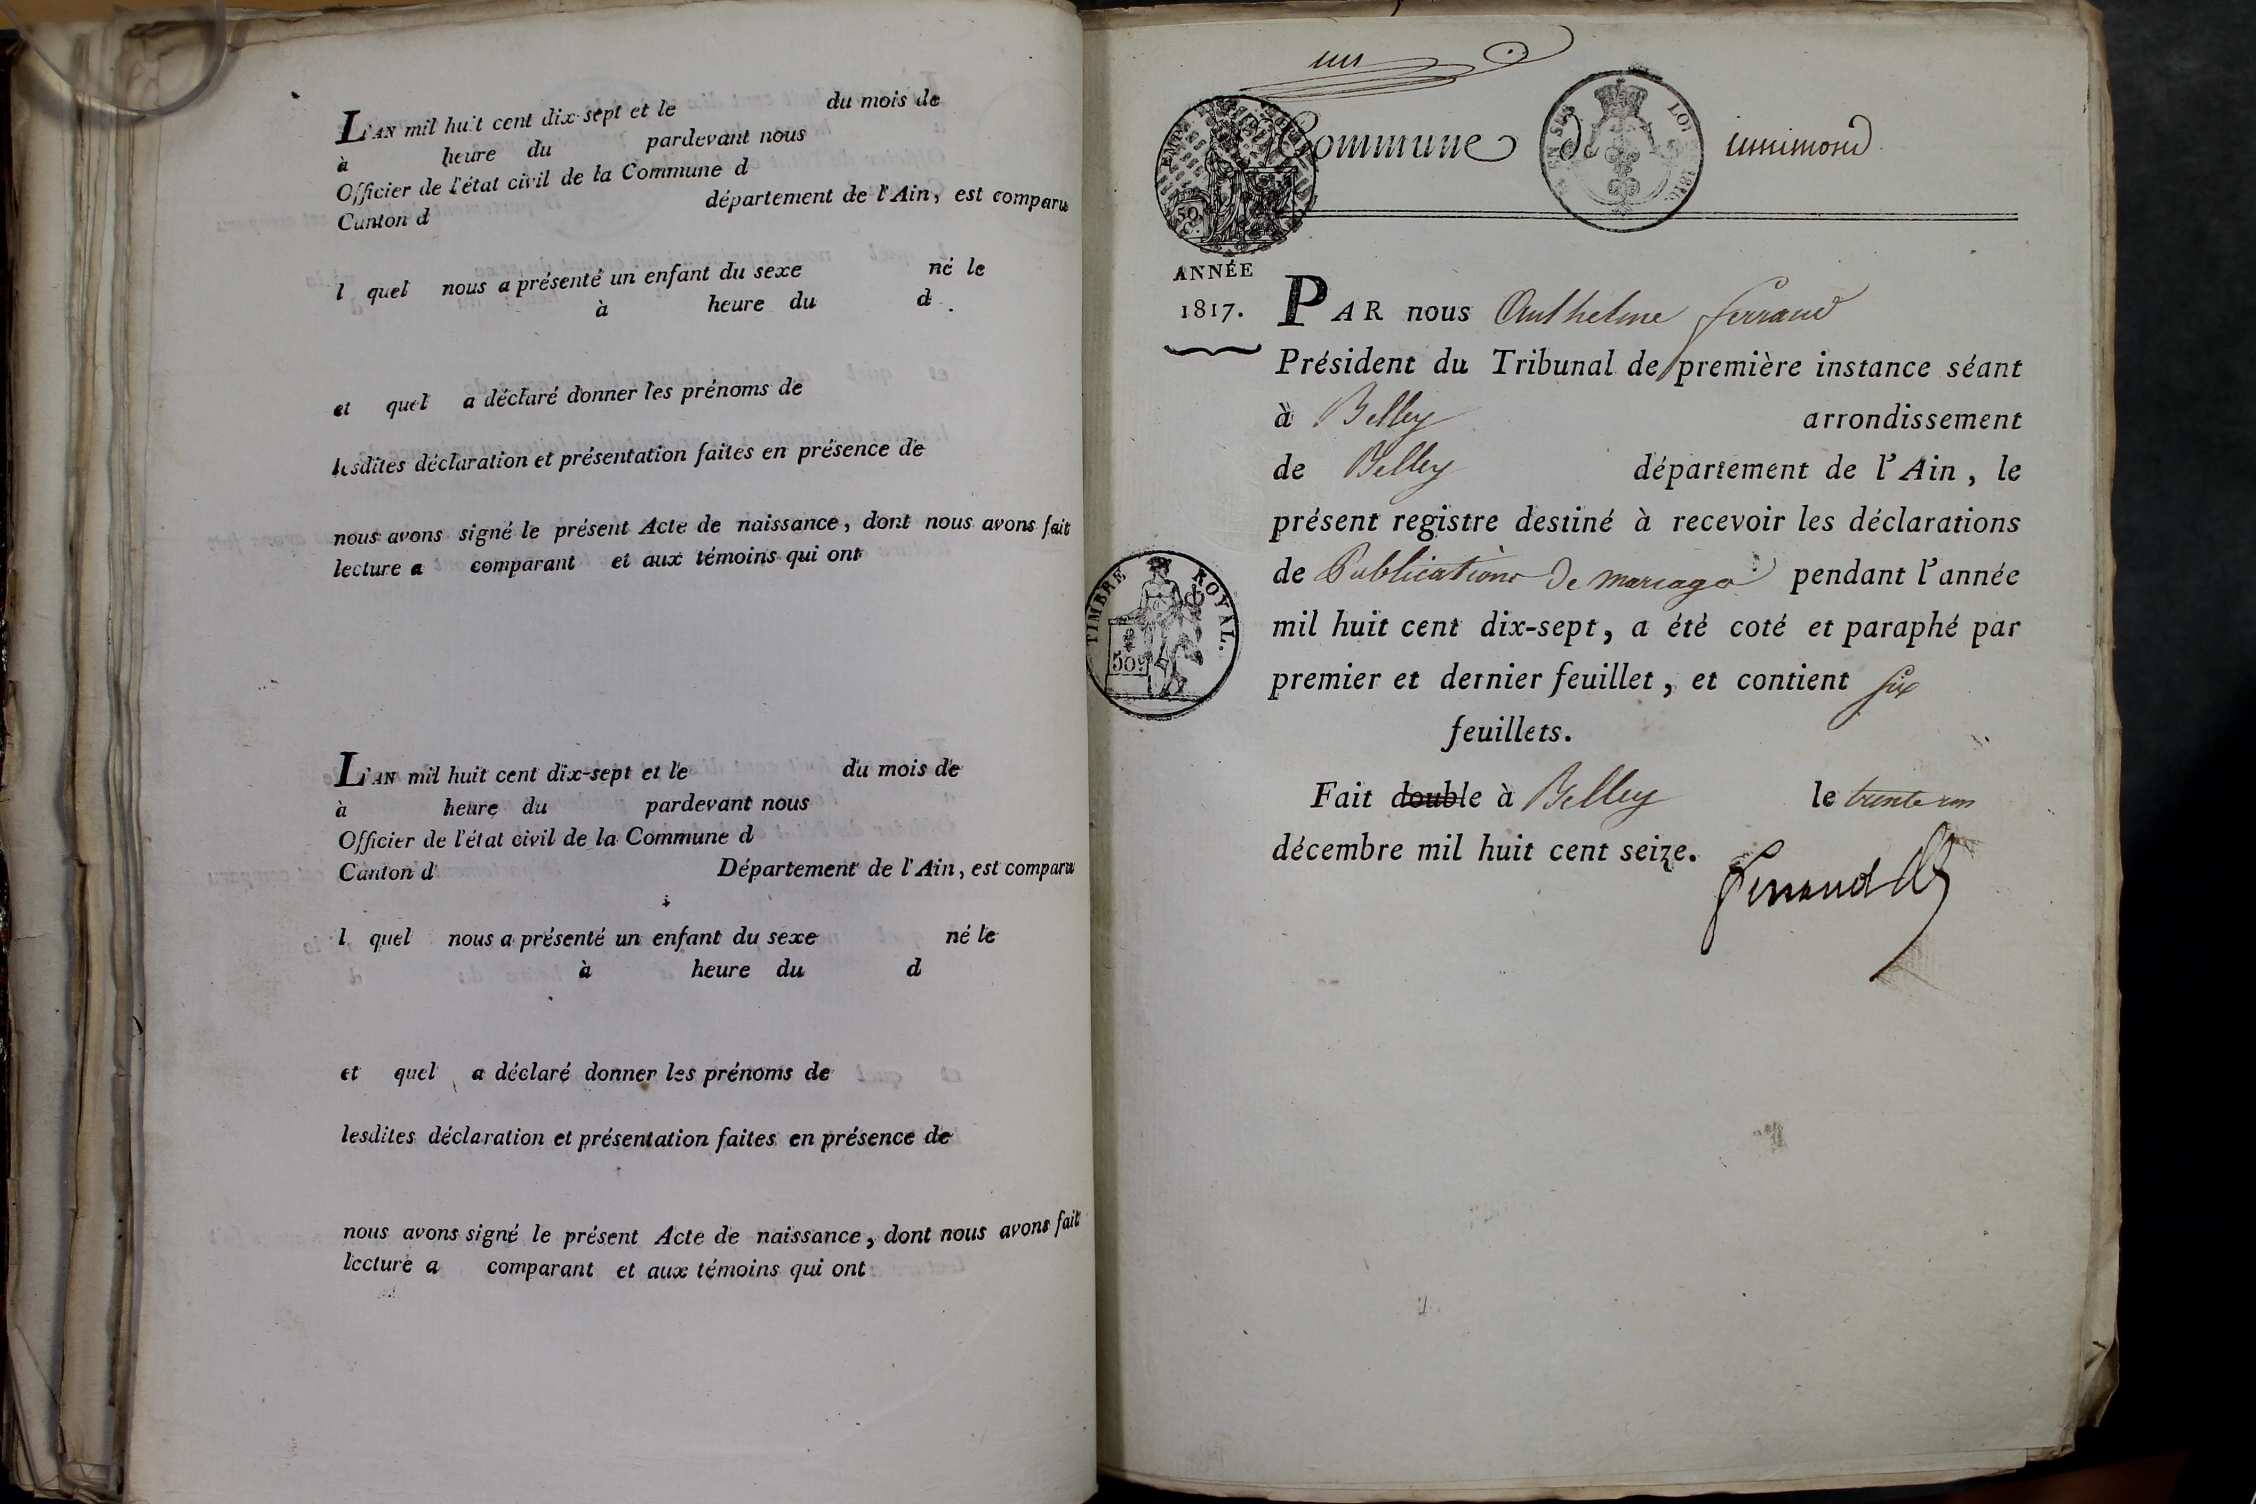 L'AN mil huit cent dix-sept et le du mois de
à heure du pardevant nous
Officier de l'état civil de la Commune d
Canton d département de l'Ain, est comparu
l quel nous a présenté un enfant du sexe né le
à heure du d
et quel a déclaré donner les prénoms de
lesdites déclaration et présentation faites en présence de
nous avons signé le présent Acte de naissance, dont nous avons fait
lecture a comparant et aux témoins qui ont
L'AN mil huit cent dix-sept et le du mois de
à heure du pardevant nous
Officier de l'état civil de la Commune d
Canton d Département de l'Ain, est comparu
l quel nous a présenté un enfant du sexe né le
à heure du d
et quel a déclaré donner les prénoms de
lesdites déclaration et présentation faites en présence de
nous avons signé le présent Acte de naissance, dont nous avons fait
lecture a comparant et aux témoins qui ont
un
Commune de innimond
EN SUS LOI 1816.
ANNÉE
1817.
PAR nous Anthelme ferrand
Président du Tribunal de première instance séant
à Belley arrondissement
de Belley département de l'Ain, le
présent registre destiné à recevoir les déclarations
de Publications de mariage pendant l'année
mil huit cent dix-sept, a été coté et paraphé par
premier et dernier feuillet, et contient six
feuillets.
TIMBRE ROYAL.
50c
Fait double à Belley le trente un
décembre mil huit cent seize.
ferrand